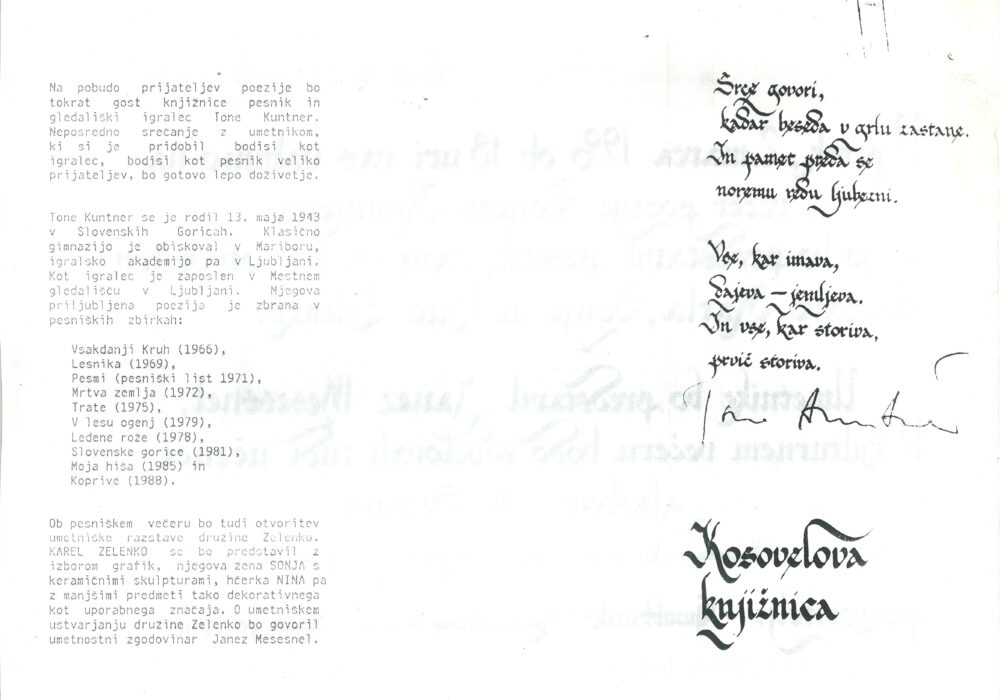 Na pobudo prijateljev poezije bo
tokrat gost knjižnice pesnik in
gledališki igralec Tone Kuntner.
Neposredno srečanje z umetnikom,
ki si je pridobil bodisi kot
igralec, bodisi kot pesnik veliko
prijateljev, bo gotovo lepo doživetje.
Tone Kuntner se je rodil 13. maja 1943
v Slovenskih Goricah. Klasično
gimnazijo je obiskoval v Mariboru,
igralsko akademijo pa v Ljubljani.
Kot igralec je zaposlen v Mestnem
gledališču v Ljubljani. Njegova
priljubljena poezija je zbrana v
pesniških zbirkah:
Vsakdanji Kruh (1966),
Lesnika (1969),
Pesmi (pesniški list 1971),
Mrtva zemlja (1972),
Trate (1975),
V lesu ogenj (1979),
Ledene rože (1978),
Slovenske gorice (1981),
Moja hiša (1985) in
Koprive (1988).
Ob pesniškem večeru bo tudi otvoritev
umetniške razstave družine Zelenko.
KAREL ZELENKO se bo predstavil z
izborom grafik, njegova žena SONJA s
keramičnimi skulpturami, hčerka NINA pa
z manjšimi predmeti tako dekorativnega
kot uporabnega značaja. O umetniškem
ustvarjanju družine Zelenko bo govoril
umetnostni zgodovinar Janez Mesesnel.
Srce govori,
kadar beseda v grlu zastane.
In pamet preda se
noremu redu ljubezni.
Vse, kar imava,
dajeva – jemljeva.
In vse, kar storiva,
prvič storiva.
Kosovelova
knjižnica